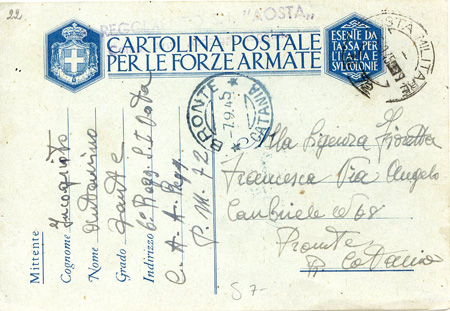 22
REGG. "AOSTA"
CARTOLINA POSTALE
PER LE FORZE ARMATE
ESENTE DA
TASSA PER
L'ITALIA E
SUE COLONIE
POSTA MILITARE
BRONTE
7.9.45
CATANIA
Mittente
Cognome Incognito
Nome Antonino
Grado Fante
Indirizzo 6° Regg. F. Aosta
C. A. A. Regg
P. M. 72
Alla Signora Fioretta
Francesca Via Angelo
68
Bronte
P. Catania
S 7-